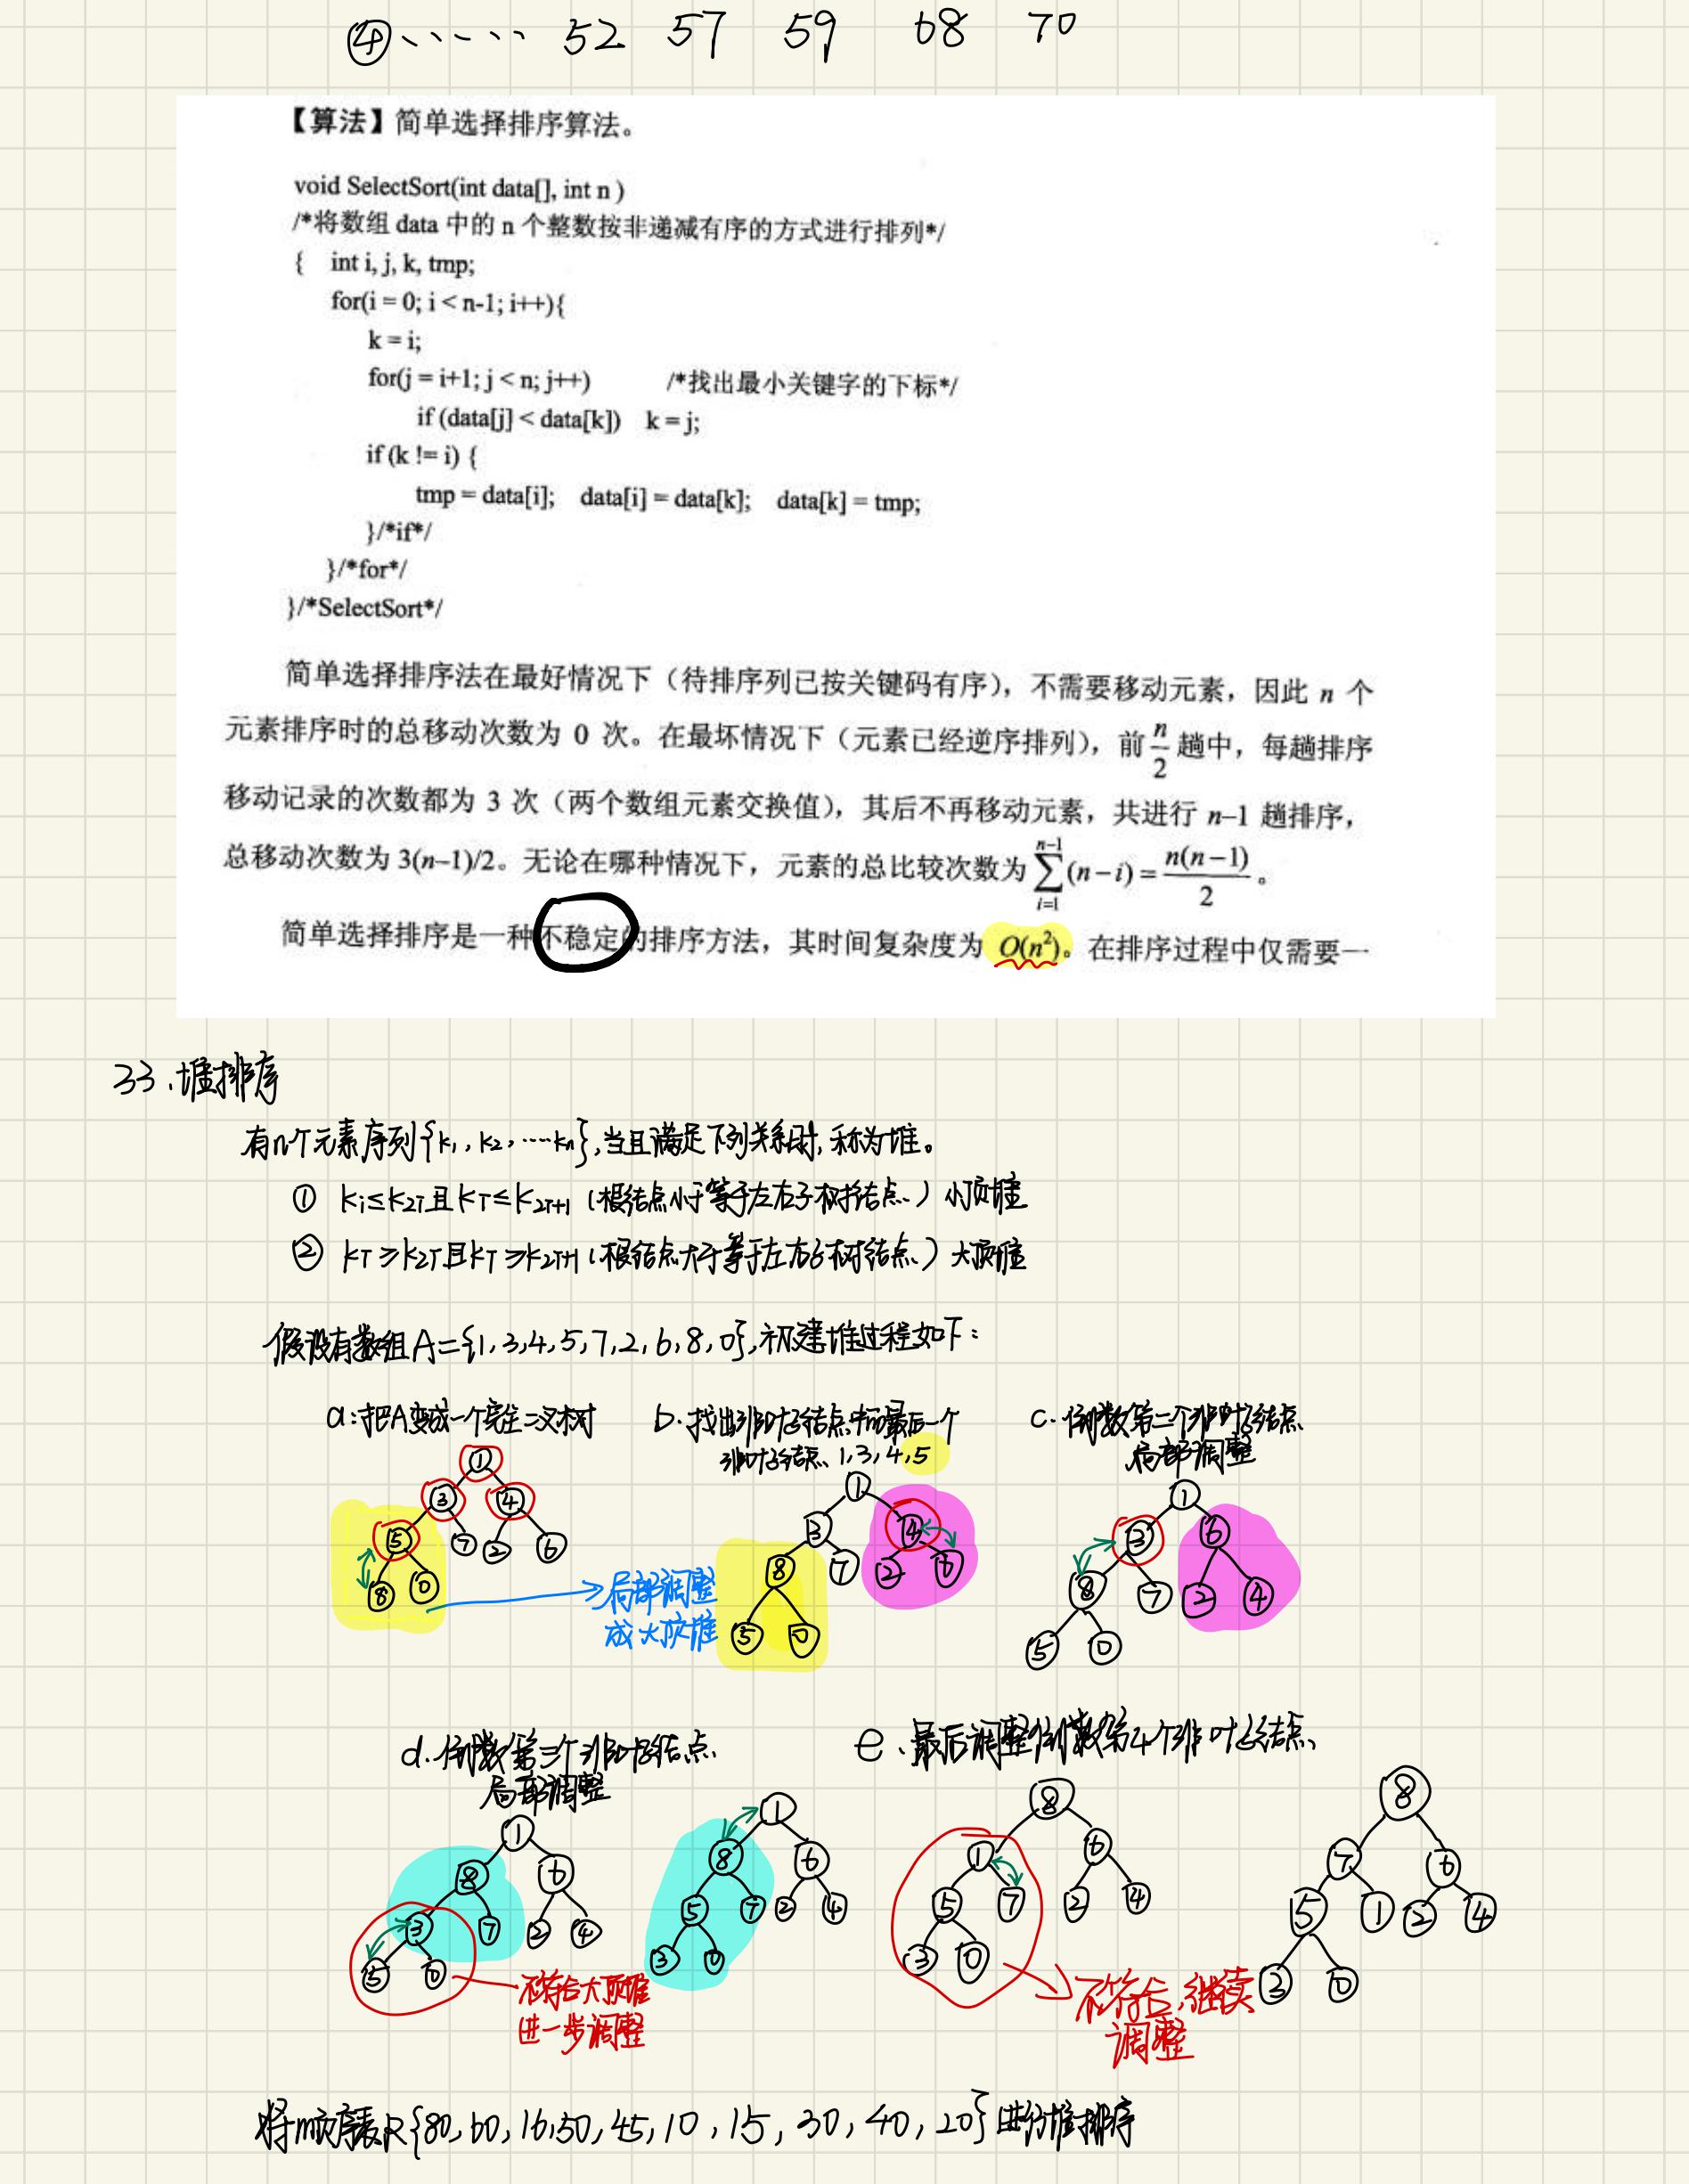 ④、、、、、 52 57 59 68 70
【算法】简单选择排序算法。
void SelectSort(int data[], int n )
/*将数组 data 中的 n 个整数按非递减有序的方式进行排列*/
{ int i, j, k, tmp;
for(i = 0; i < n-1; i++){
k = i;
for(j = i+1; j < n; j++) /*找出最小关键字的下标*/
if (data[j] < data[k]) k = j;
if (k != i) {
tmp = data[i]; data[i] = data[k]; data[k] = tmp;
}/*if*/
}/*for*/
}/*SelectSort*/
简单选择排序法在最好情况下（待排序列已按关键码有序），不需要移动元素，因此 n 个
元素排序时的总移动次数为 0 次。在最坏情况下（元素已经逆序排列），前 n/2 趟中，每趟排序
移动记录的次数都为 3 次（两个数组元素交换值），其后不再移动元素，共进行 n–1 趟排序，
总移动次数为 3(n–1)/2。无论在哪种情况下，元素的总比较次数为 ∑_{i=1}^{n-1}(n−i) = n(n−1)/2 。
简单选择排序是一种不稳定的排序方法，其时间复杂度为 O(n²)。在排序过程中仅需要一
33、堆排序
有n个元素序列{k₁, k₂, ……kn},当且满足下列关系时,称为堆。
① ki≤k2i且ki≤k2i+1（根结点小于等于左右子树结点、）小顶堆
② ki≥k2i且ki≥k2i+1（根结点大于等于左右子树结点、）大顶堆
假设有数组A={1,3,4,5,7,2,6,8,0},初建堆过程如下：
a:把A变成一个完全二叉树
b. 找出非叶子结点中的最后一个
非叶子结点、1,3,4,5
c. 倒数第二个非叶子结点
局部调整
1
3 4
5 7 2 6
8 0
局部调整
成大顶堆
1
3 4
8 7 2 6
5 0
1
3 6
8 7 2 4
5 0
d. 倒数第三个非叶子结点、
局部调整
e、最后调整倒数第4个非叶子结点、
1
8 6
3 7 2 4
5 0
不符合大顶堆
进一步调整
1
8 6
5 7 2 4
3 0
8
1 6
5 7 2 4
3 0
不符合,继续
调整
8
7 6
5 1 2 4
3 0
将顺序表R{80,60,16,50,45,10,15,30,40,20}进行堆排序